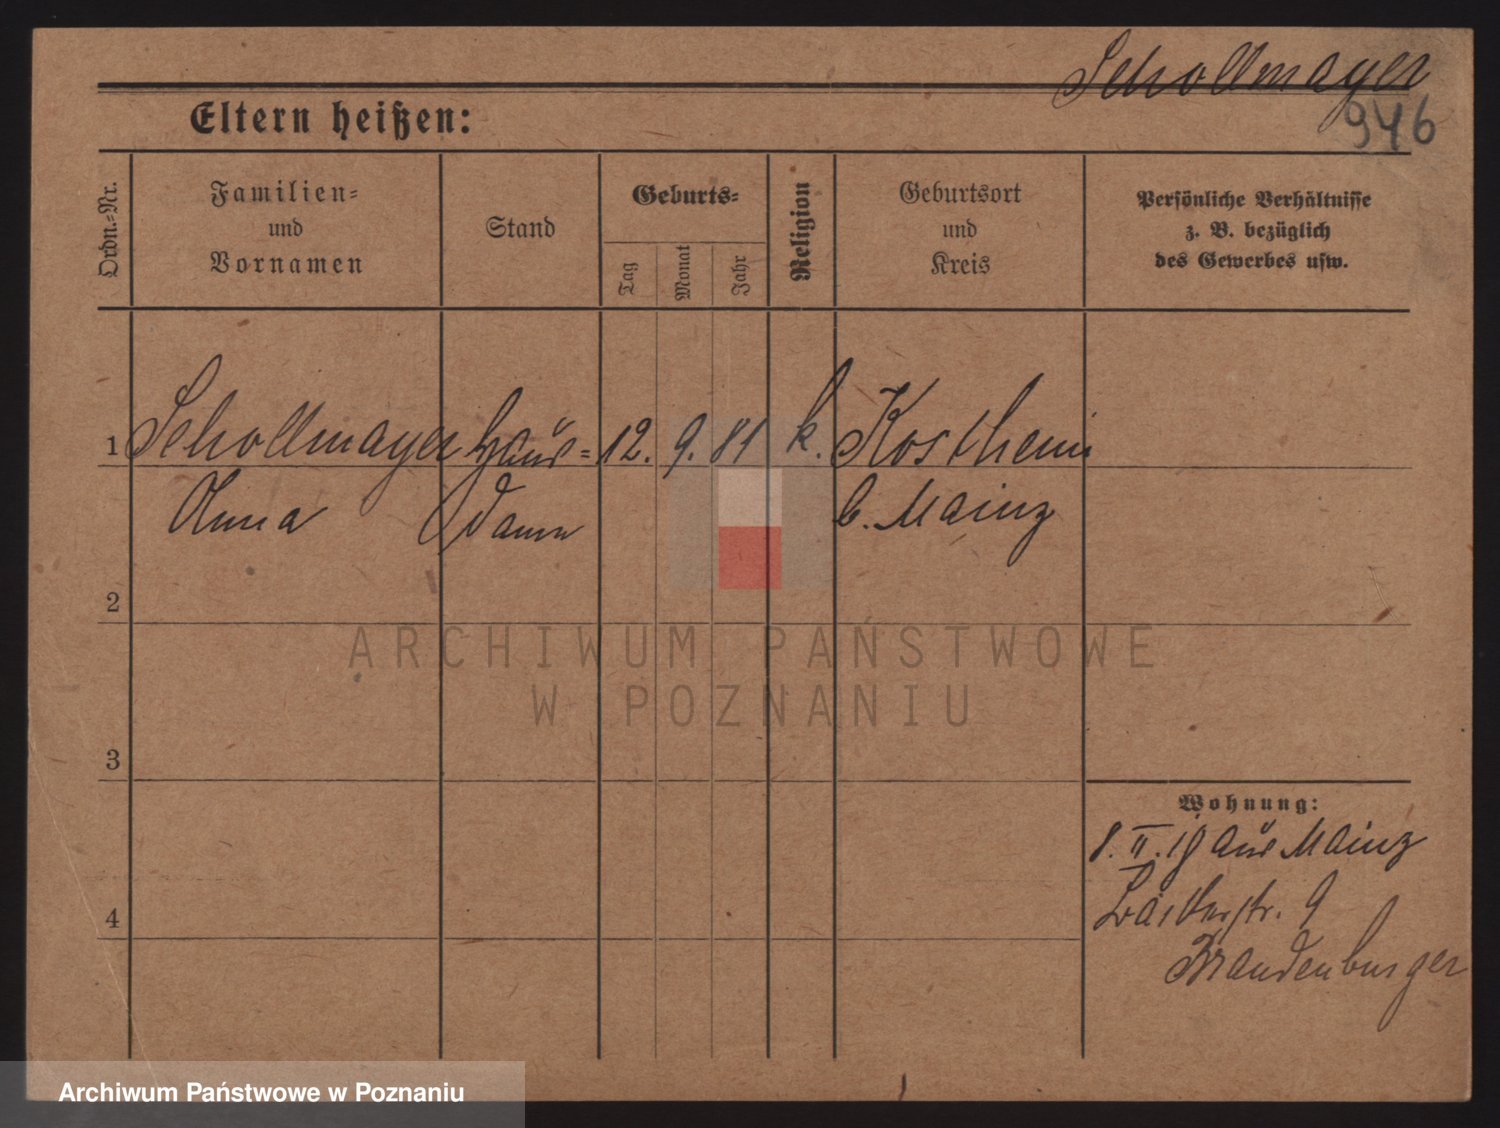 Schollmayer
946
Eltern heißen:
Ordn.-Nr.
Familien-
und
Vornamen
Stand
Geburts-
Tag
Monat
Jahr
Religion
Geburtsort
und
Kreis
Persönliche Verhältnisse
z. B. bezüglich
des Gewerbes usw.
1 Schollmayer Haus- 12. 9. 81 k. Kostheim
Anna dame b. Mainz
2
3
4
Wohnung:
8. II. 19 aus Mainz
9
Brandenburger
ARCHIWUM PAŃSTWOWE
W POZNANIU
Archiwum Państwowe w Poznaniu